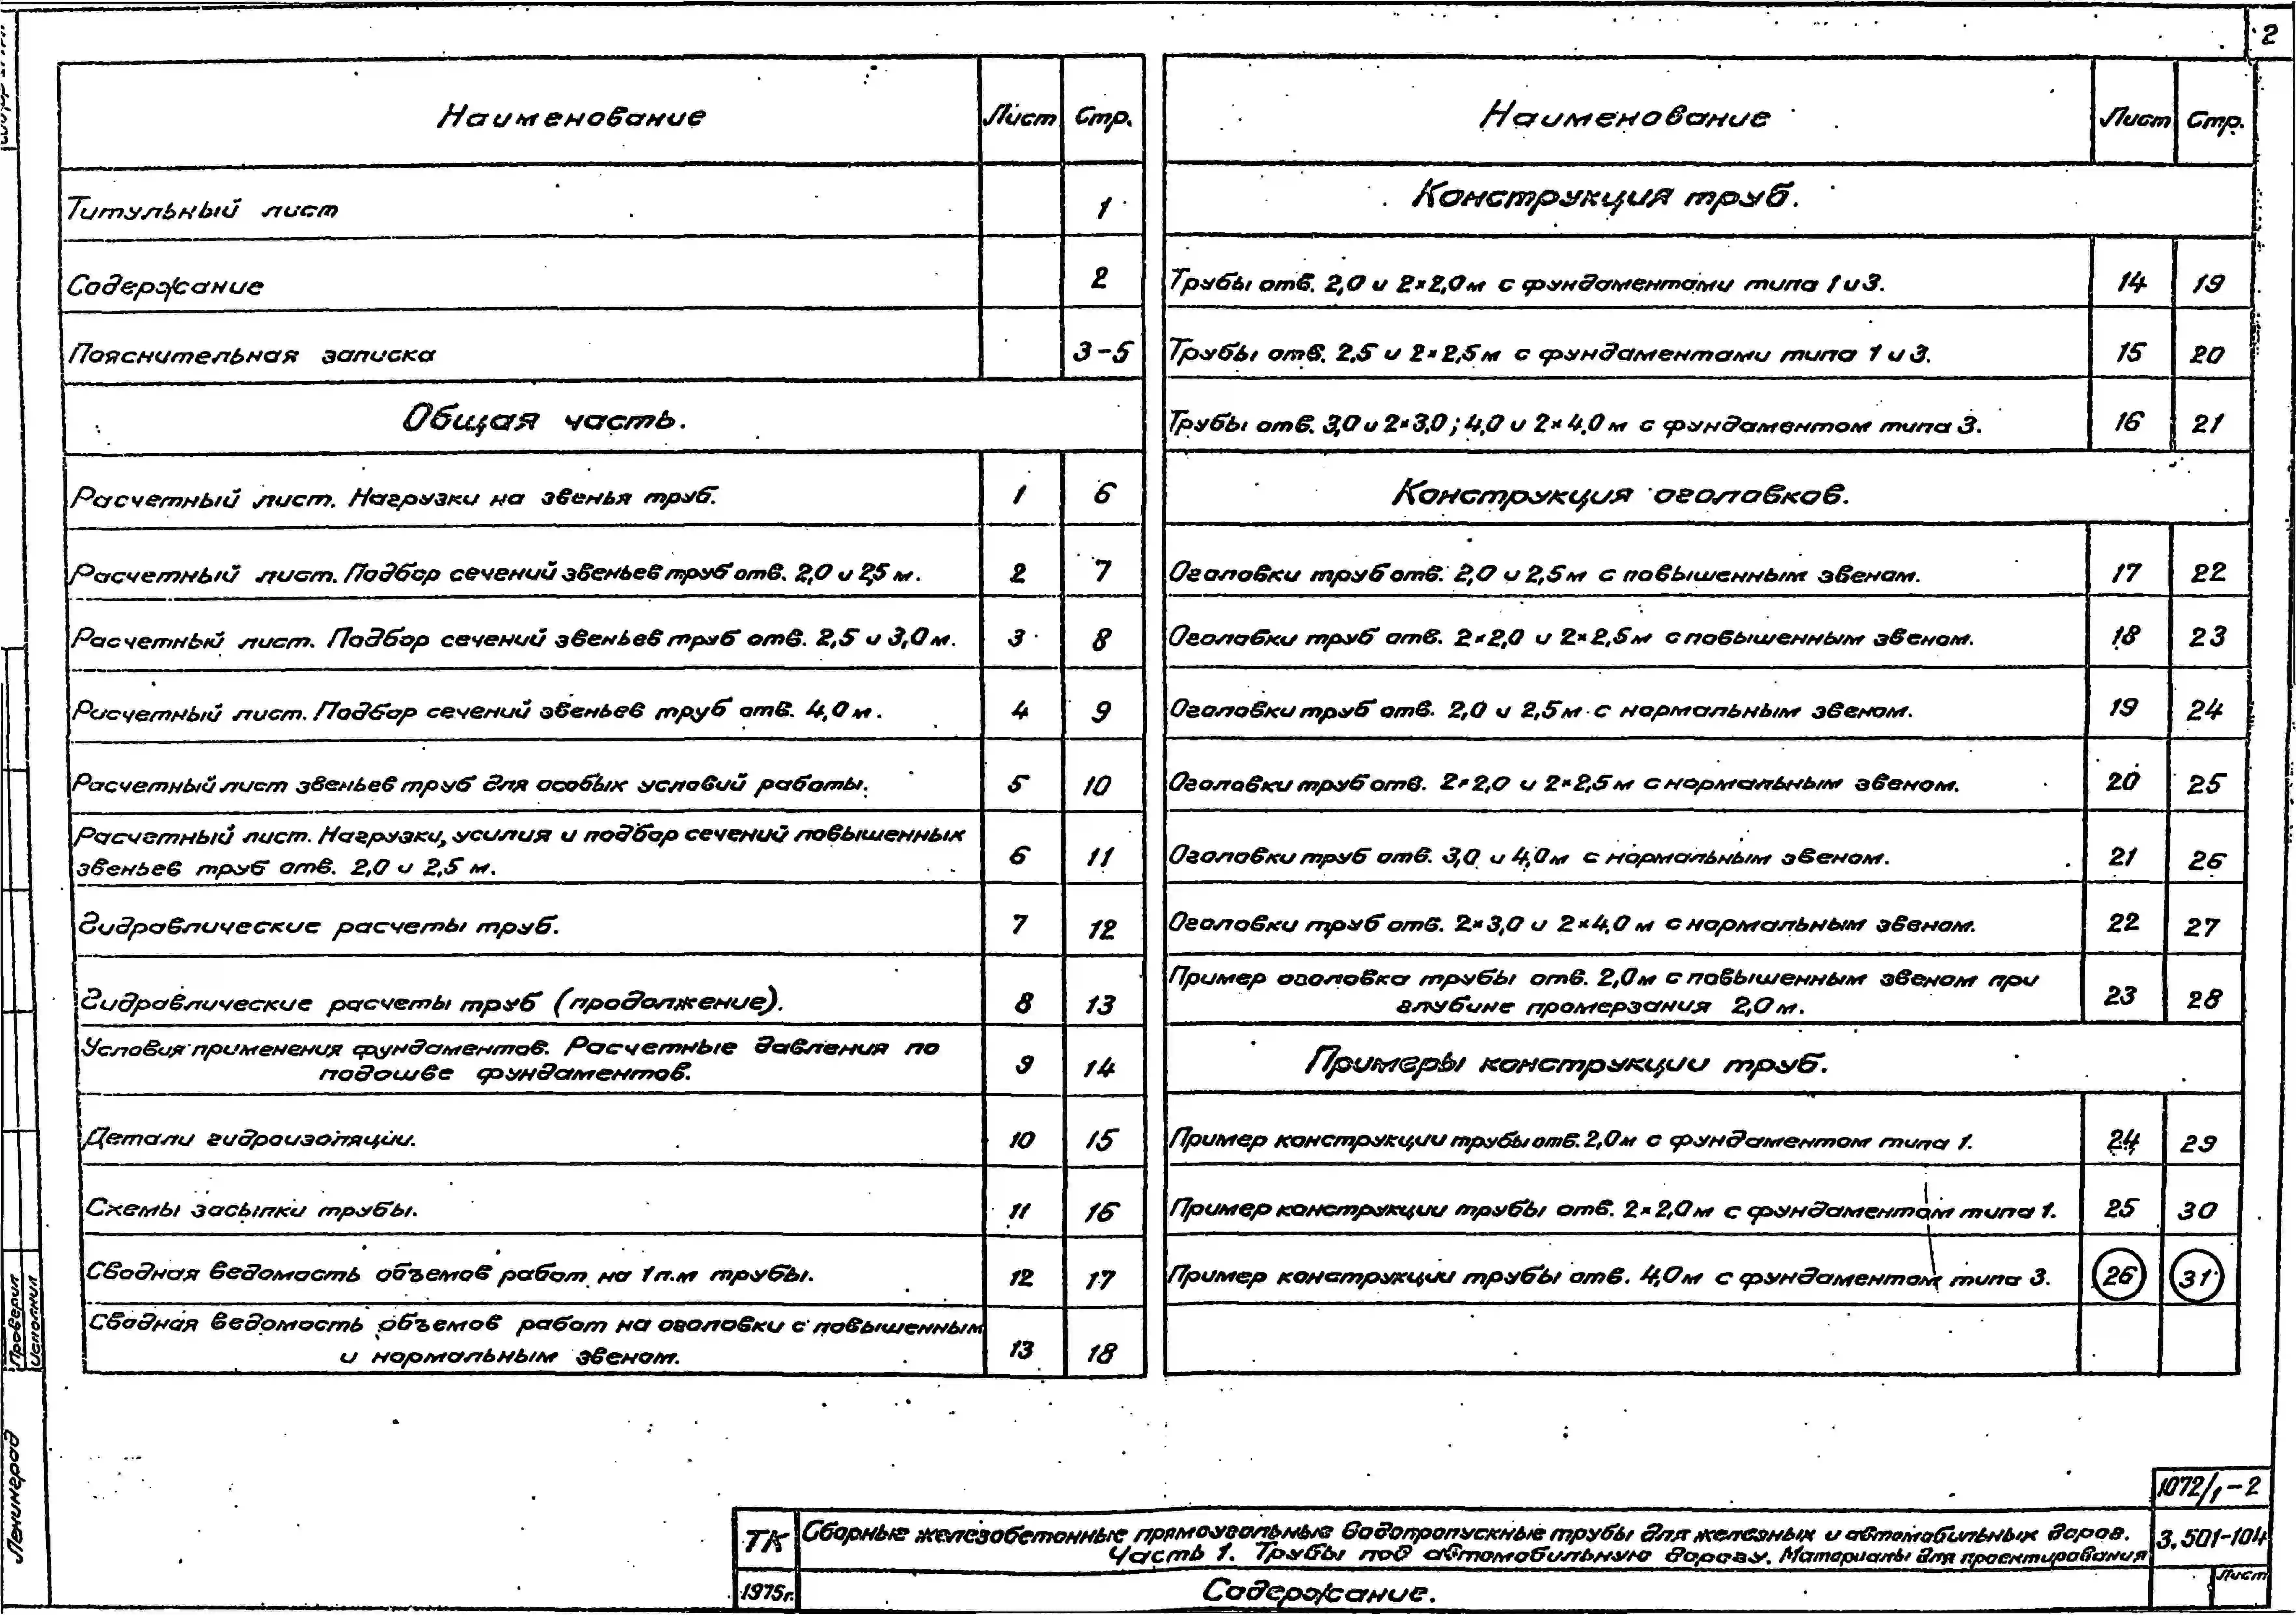 2
Наименование Лист Стр.
Титульный лист 1
Содержание 2
Пояснительная записка 3-5
Общая часть.
Расчетный лист. Нагрузки на звенья труб. 1 6
Расчетный лист. Подбор сечений звеньев труб отв. 2,0 и 2,5 м. 2 7
Расчетный лист. Подбор сечений звеньев труб отв. 2,5 и 3,0 м. 3 8
Расчетный лист. Подбор сечений звеньев труб отв. 4,0 м. 4 9
Расчетный лист звеньев труб для особых условий работы. 5 10
Расчетный лист. Нагрузки, усилия и подбор сечений повышенных
звеньев труб отв. 2,0 и 2,5 м. 6 11
Гидравлические расчеты труб. 7 12
Гидравлические расчеты труб (продолжение). 8 13
Условия применения фундаментов. Расчетные давления по
подошве фундаментов. 9 14
Детали гидроизоляции. 10 15
Схемы засыпки трубы. 11 16
Сводная ведомость объемов работ на 1 п.м трубы. 12 17
Сводная ведомость объемов работ на оголовки с повышенным
и нормальным звеном. 13 18
Наименование Лист Стр.
Конструкция труб.
Трубы отв. 2,0 и 2×2,0м с фундаментами типа 1 и 3. 14 19
Трубы отв. 2,5 и 2×2,5м с фундаментами типа 1 и 3. 15 20
Трубы отв. 3,0 и 2×3,0; 4,0 и 2×4,0м с фундаментом типа 3. 16 21
Конструкция оголовков.
Оголовки труб отв. 2,0 и 2,5м с повышенным звеном. 17 22
Оголовки труб отв. 2×2,0 и 2×2,5м с повышенным звеном. 18 23
Оголовки труб отв. 2,0 и 2,5м с нормальным звеном. 19 24
Оголовки труб отв. 2×2,0 и 2×2,5м с нормальным звеном. 20 25
Оголовки труб отв. 3,0 и 4,0м с нормальным звеном. 21 26
Оголовки труб отв. 2×3,0 и 2×4,0 м с нормальным звеном. 22 27
Пример оголовка трубы отв. 2,0м с повышенным звеном при
глубине промерзания 2,0 м. 23 28
Примеры конструкции труб.
Пример конструкции трубы отв. 2,0м с фундаментом типа 1. 24 29
Пример конструкции трубы отв. 2×2,0м с фундаментом типа 1. 25 30
Пример конструкции трубы отв. 4,0м с фундаментом типа 3. 26 31
Проверил
Исполнил
Ленинград
1072/1-2
ТК Сборные железобетонные прямоугольные водопропускные трубы для железных и автомобильных дорог. 3.501-104
Часть 1. Трубы под автомобильную дорогу. Материалы для проектирования
1975г. Содержание. Лист